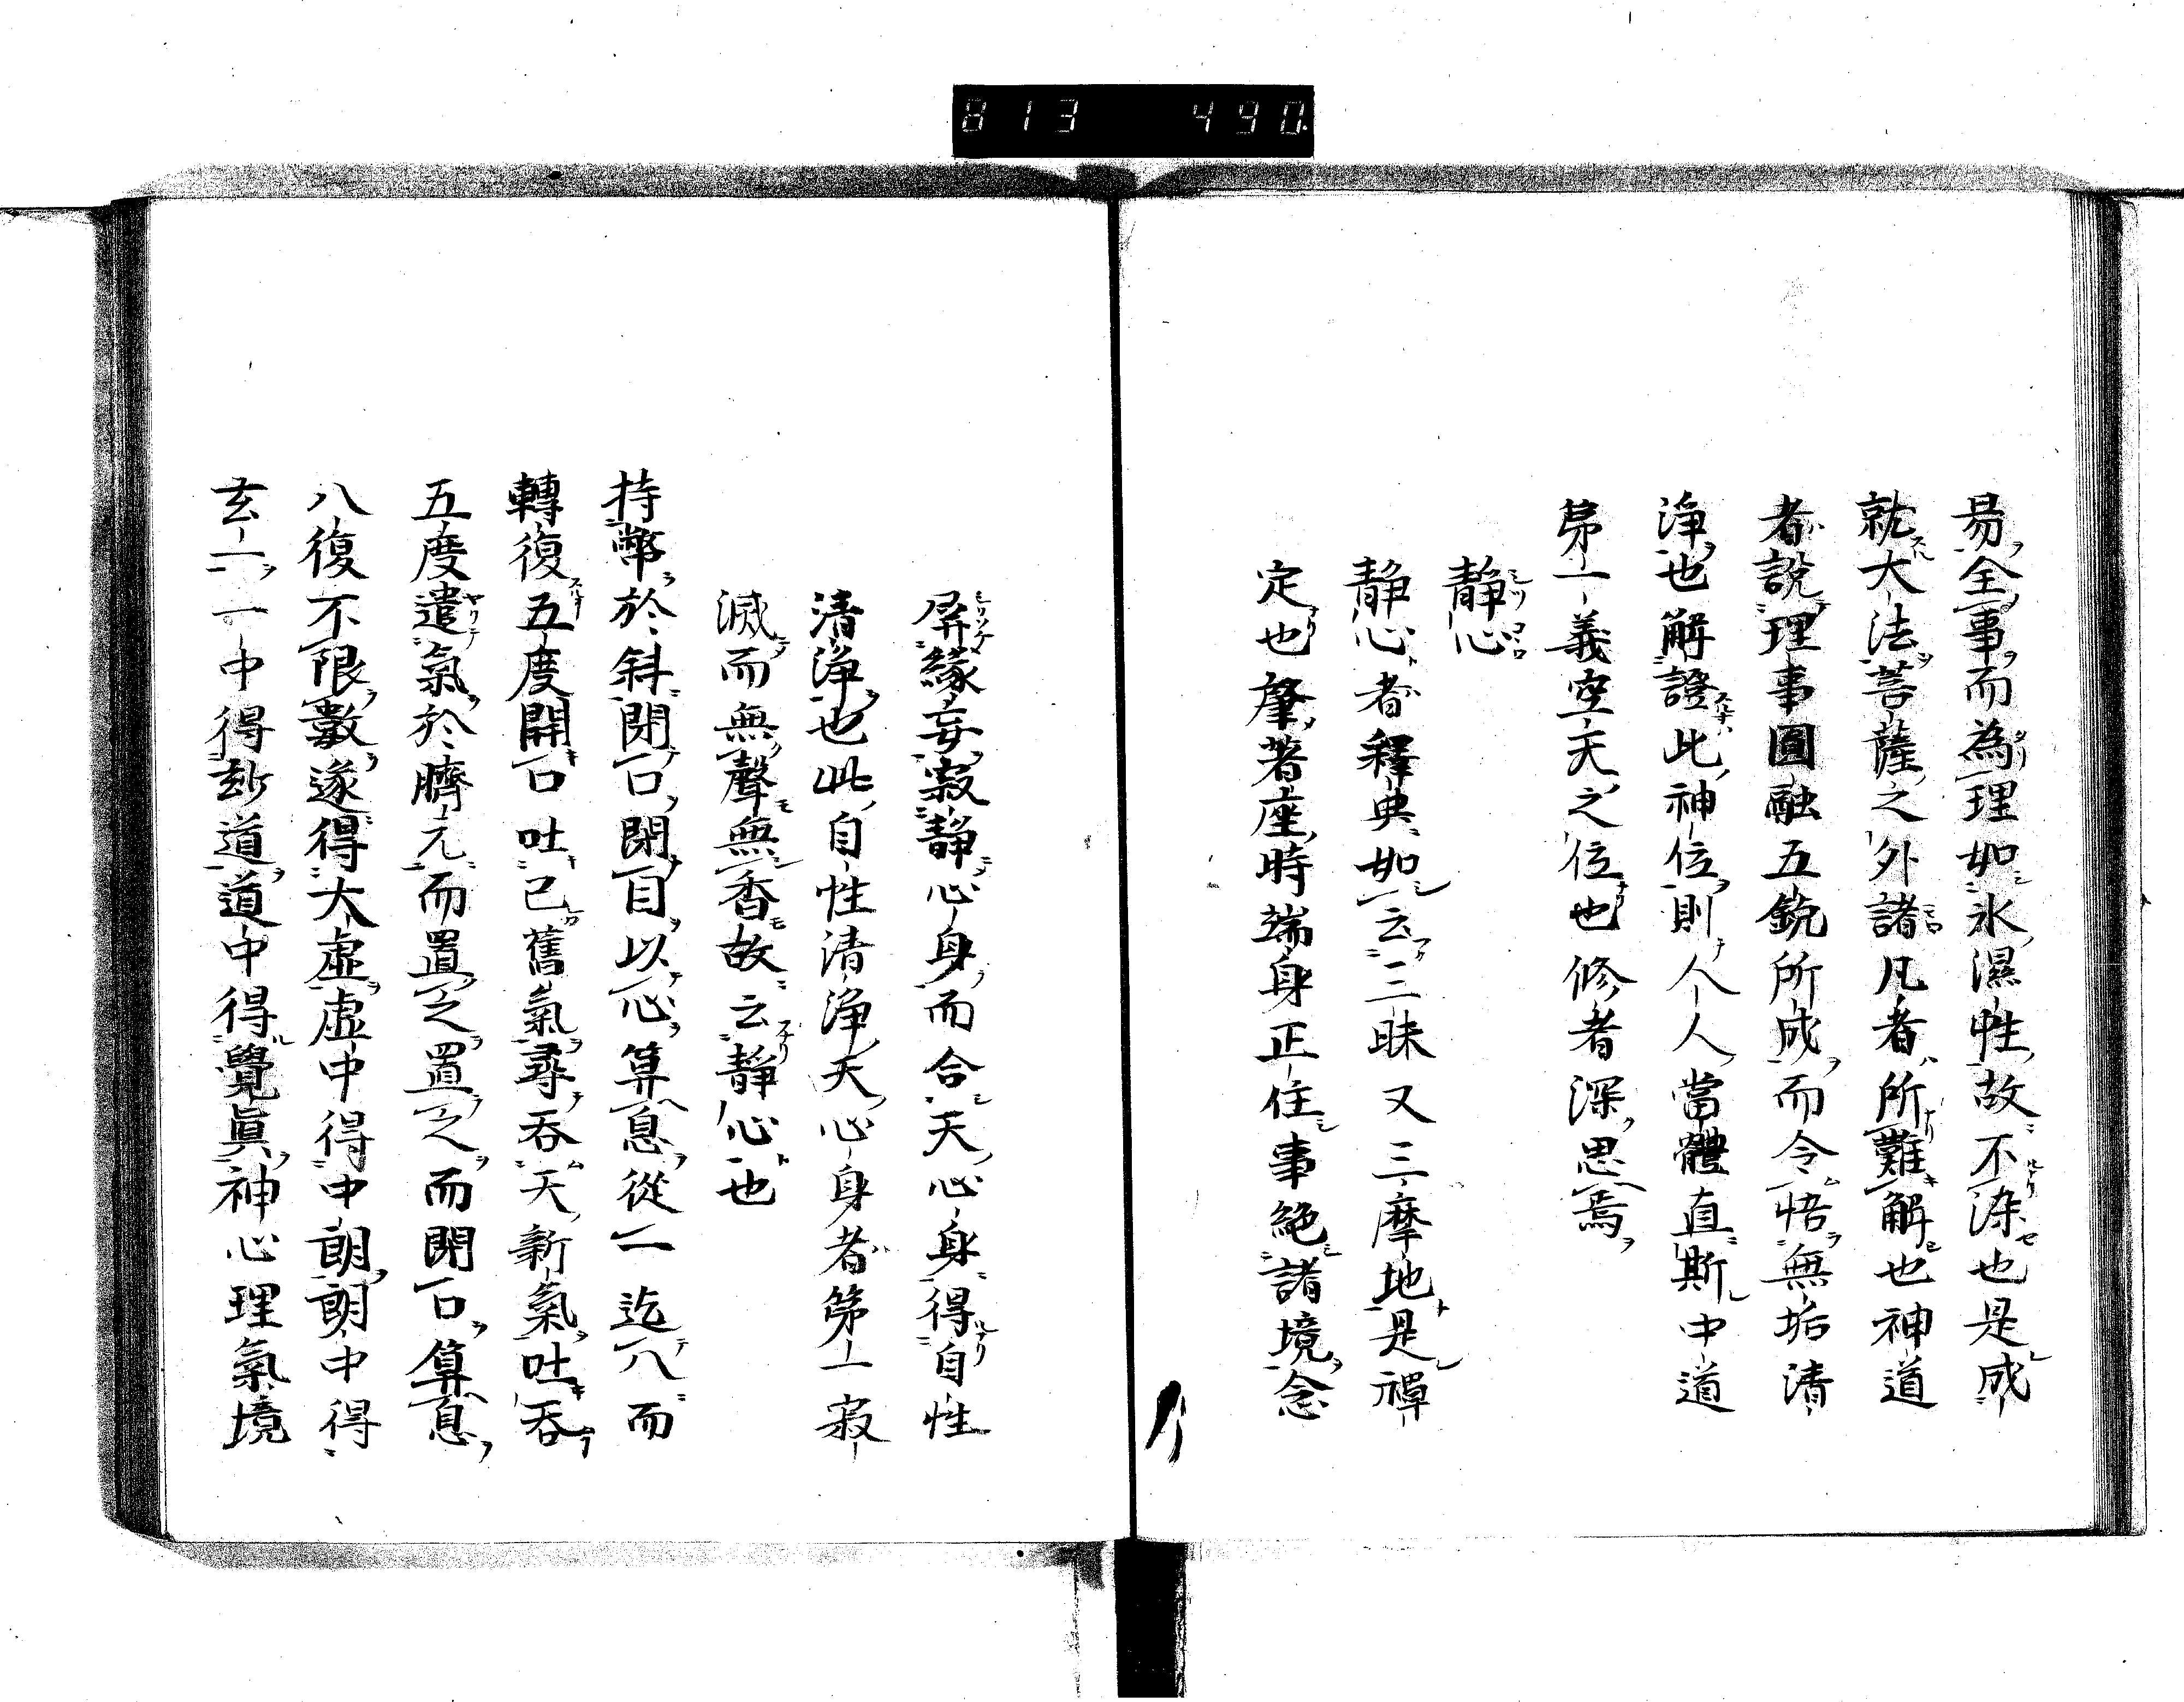 813 490.
易全事而為理如氷濕性故不染也是成
就大法菩薩之外諸凡者所難解也神道
者說理事圓融五鈗所成而令悟無垢清
淨也解證此神位則人人當體直斯中道
第一義空天之位也修者深思焉
静心
静心者釋典如云三昧又三摩地是禪
定也肇著座時端身正住事絶諸境念
屏緣妄寂静心身而合天心身得自性
清淨也此自性清淨天心身者第一寂
滅而無聲無香故云静心也
持幣於斜閉口閉目以心算息從一迄八而
轉復五度開口吐已舊氣尋吞天新氣吐吞
五度遣氣於臍元而置之置之而閉口算息
八復不限數遂得大虛虛中得中朗朗中得
玄一一中得玅道道中得覺眞神心理氣境